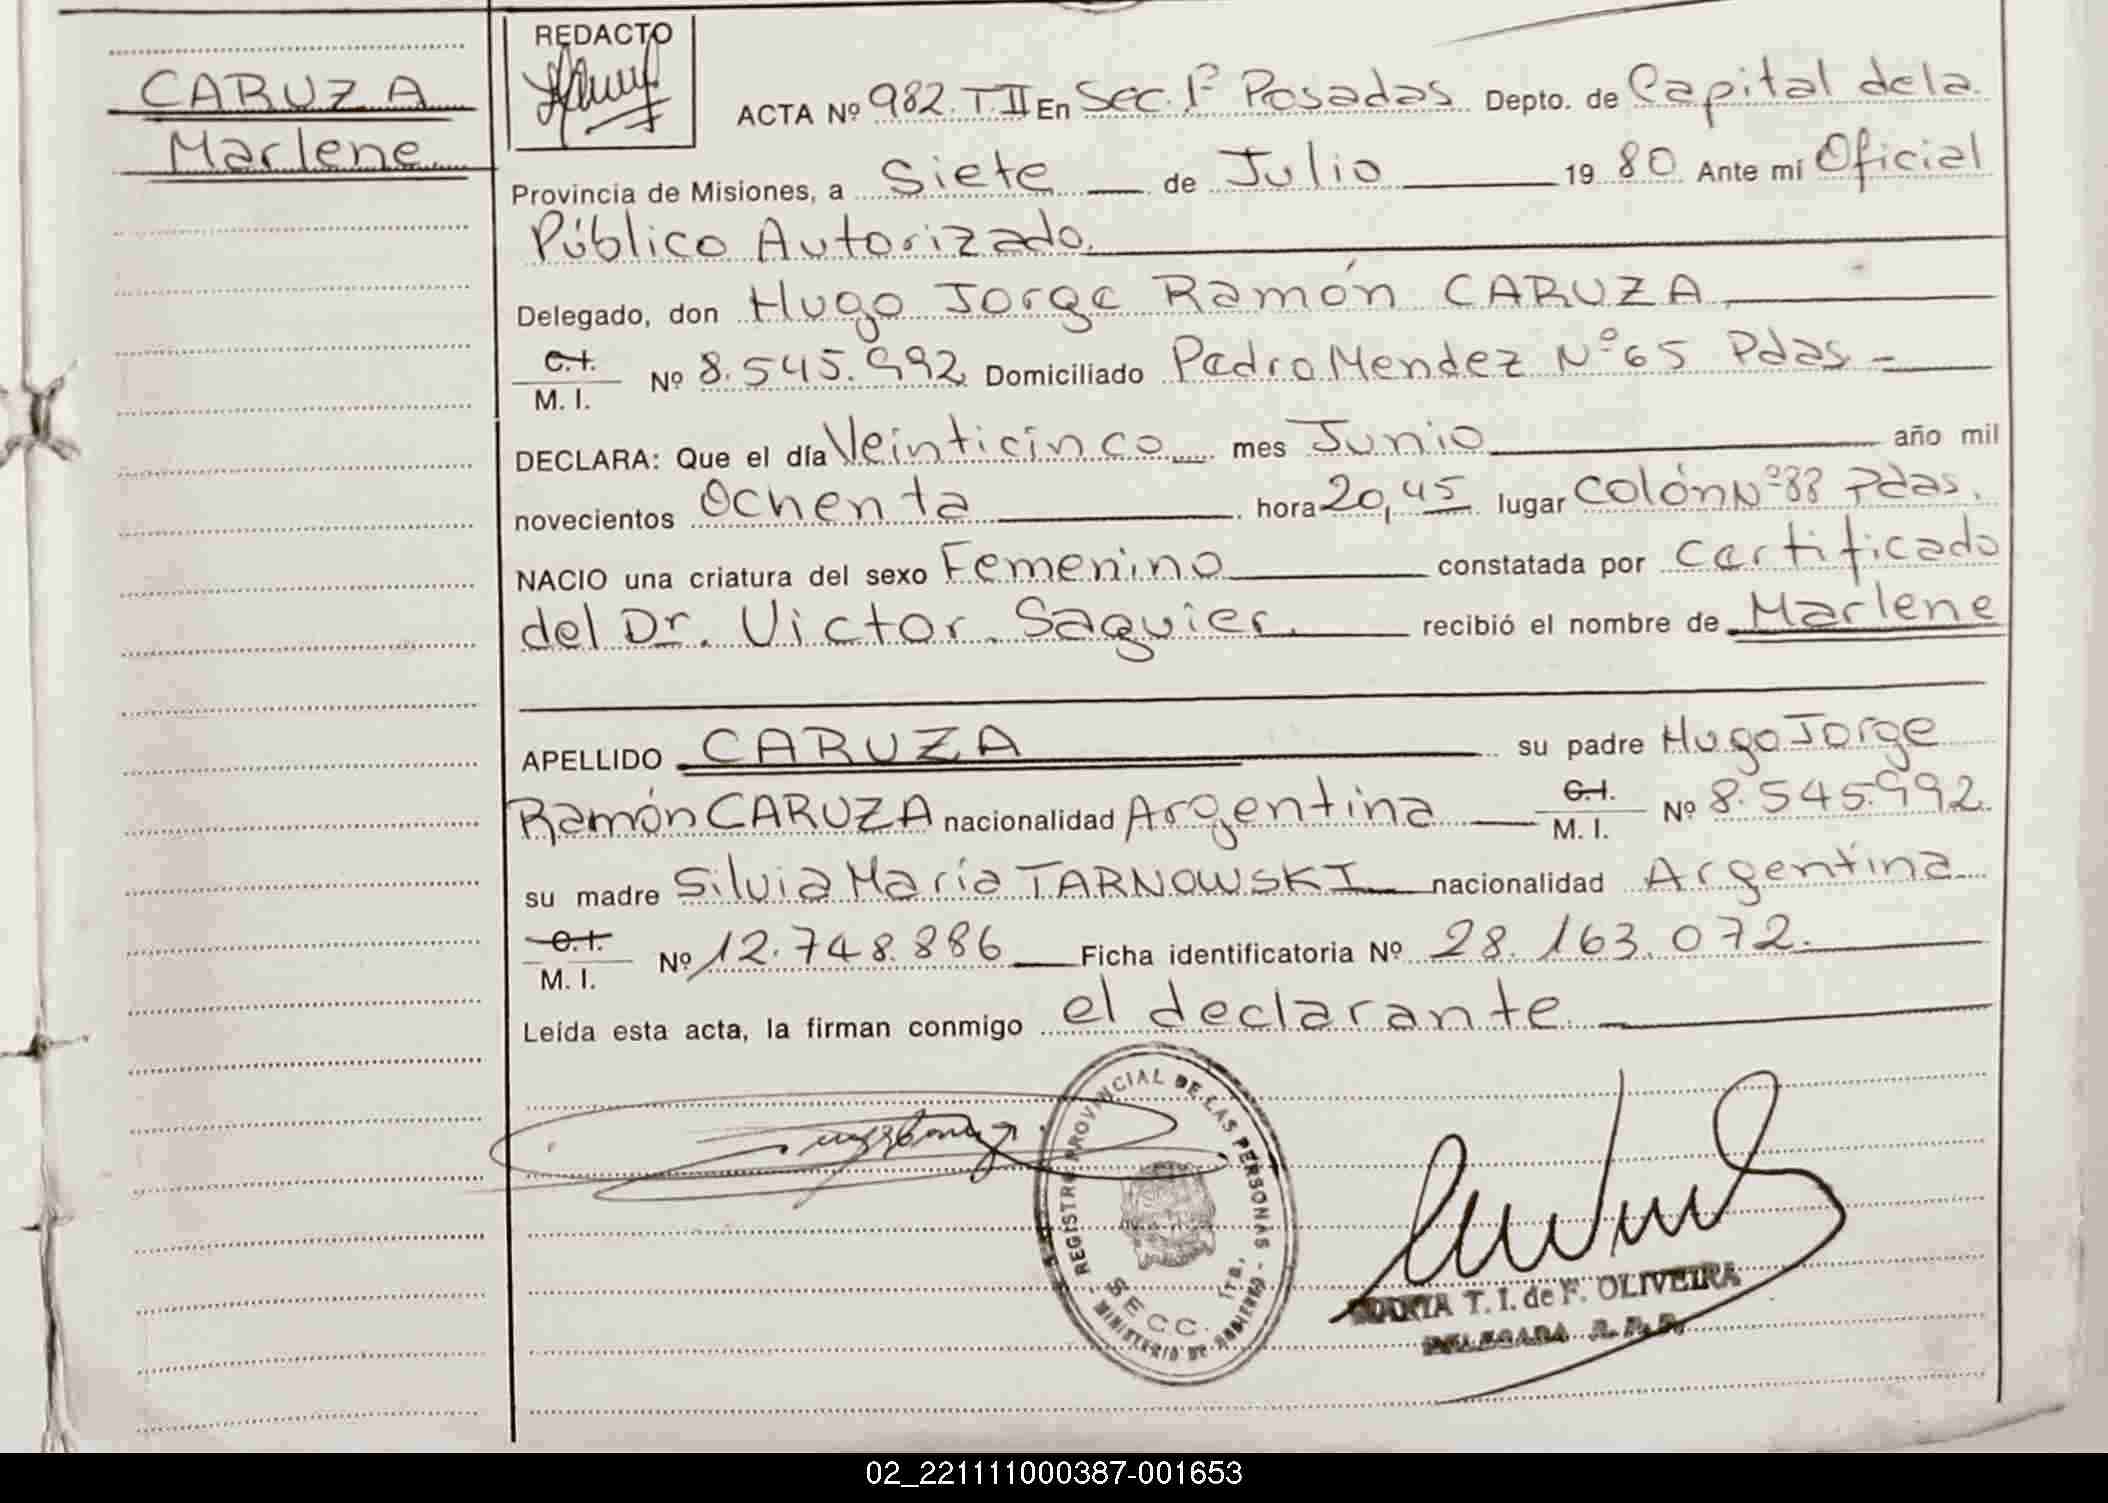 CARUZA
Marlene
REDACTO
ACTA Nº 982. T. II En Sec. 1ª Posadas Depto. de Capital de la
Provincia de Misiones, a Siete de Julio 19 80 Ante mi Oficial
Público Autorizado.
Delegado, don Hugo Jorge Ramón CARUZA
C.I.
M. I. Nº 8.545.992 Domiciliado Pedro Mendez Nº 65 Pdas
DECLARA: Que el día Veinticinco mes Junio año mil
novecientos Ochenta hora 20,45 lugar Colón Nº 88 Pdas.
NACIO una criatura del sexo Femenino constatada por Certificado
del Dr. Victor Saguier. recibió el nombre de Marlene
APELLIDO CARUZA su padre Hugo Jorge
Ramón CARUZA nacionalidad Argentina C.I.
M. I. Nº 8.545.992
su madre Silvia María TARNOWSKI nacionalidad Argentina
C.I.
M. I. Nº 12.748.886 Ficha identificatoria Nº 28.163.072.
Leída esta acta, la firman conmigo el declarante
REGISTRO PROVINCIAL DE LAS PERSONAS
SECC. 1ra.
MINISTERIO DE GOBIERNO
MARTA T. I. de F. OLIVEIRA
DELEGADA R. P. P.
02_221111000387-001653